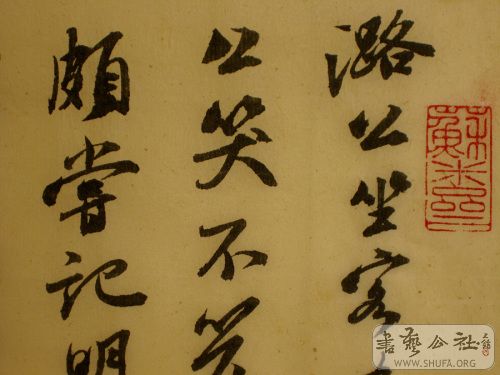 潞公坐客
公笑不
頗嘗記明
書藝公社
WWW.SHUFA.ORG